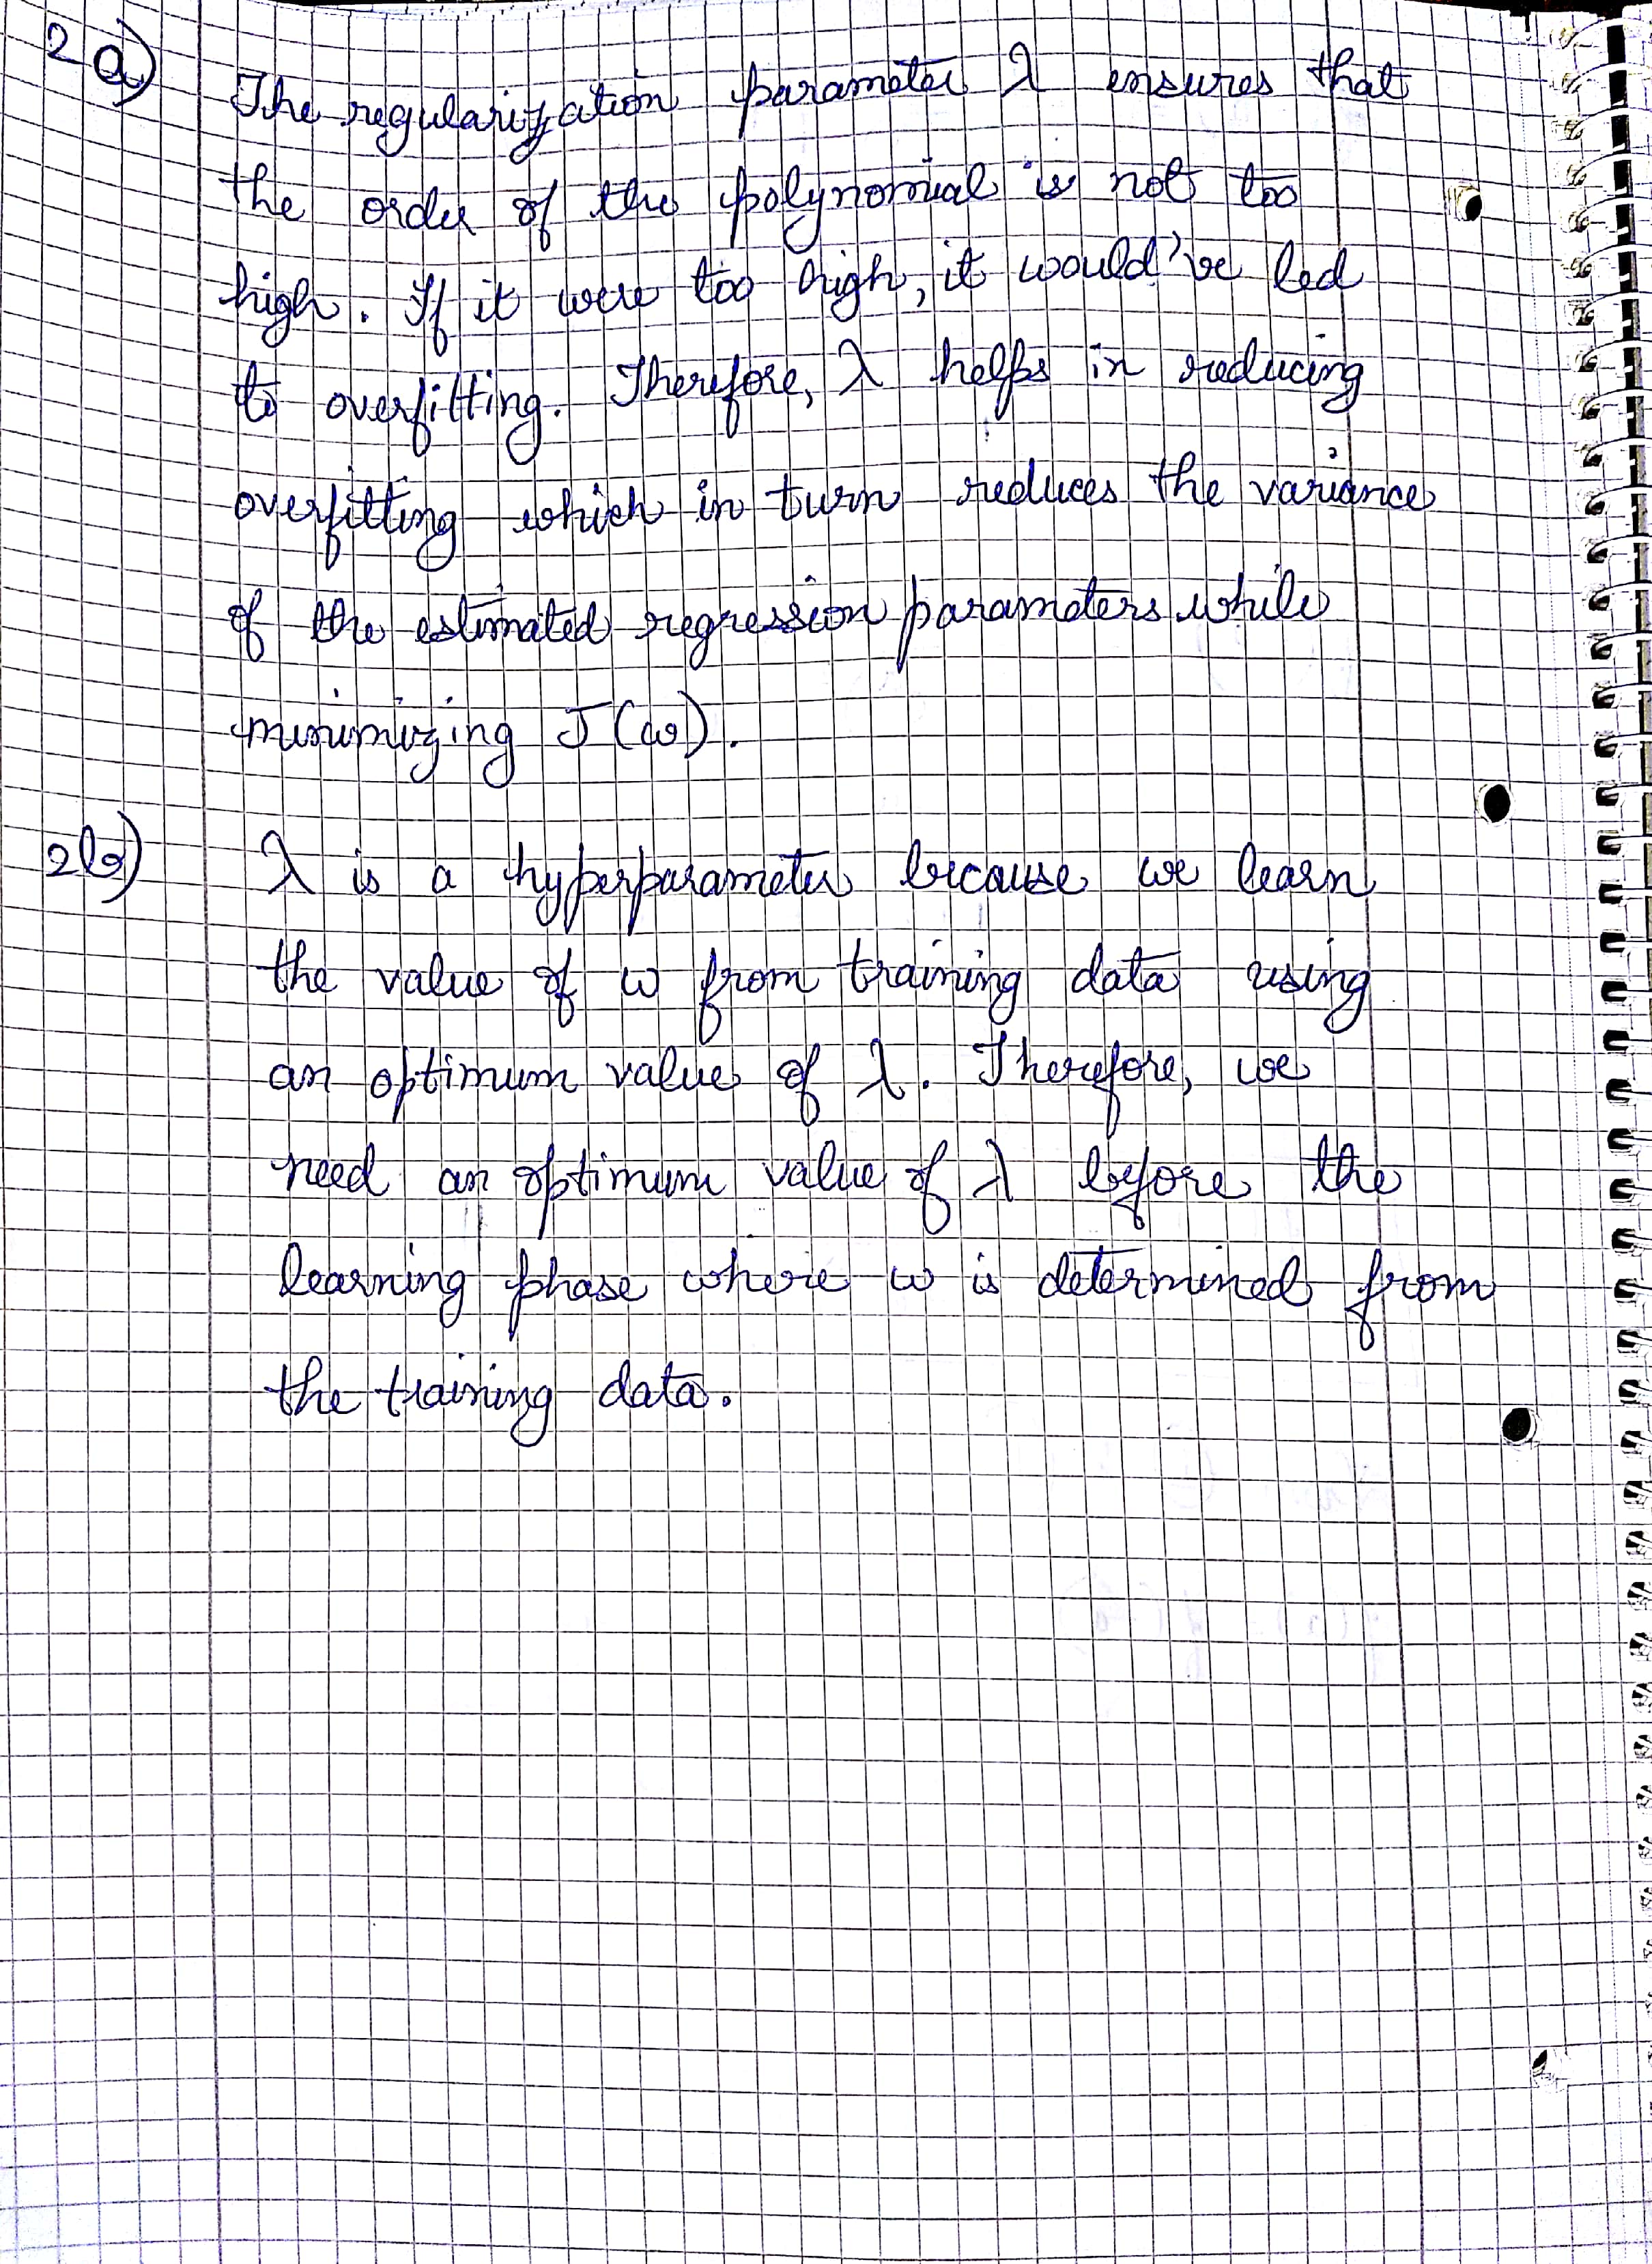 2a)
The regularization parameter λ ensures that
the order of the polynomial is not too
high. If it were too high, it would've led
to overfitting. Therefore, λ helps in reducing
overfitting which in turn reduces the variance
of the estimated regression parameters while
minimizing J(ω).
2b) λ is a hyperparameter because we learn
the value of ω from training data using
an optimum value of λ. Therefore, we
need an optimum value of λ before the
learning phase where ω is determined from
the training data.